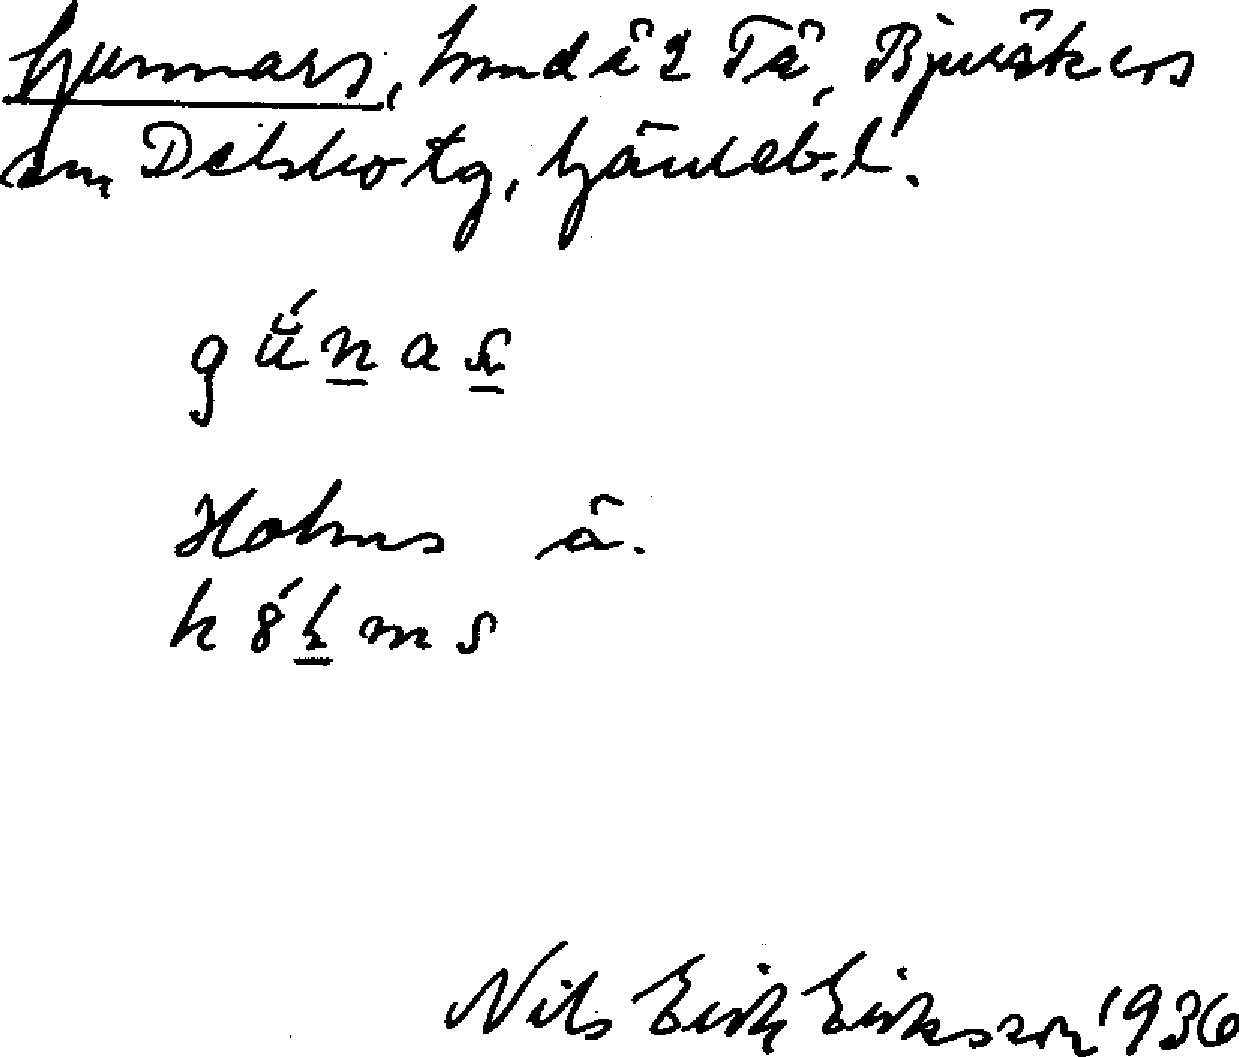 Gunnars, hmd å 2 Tå, Bjuråkers
sn, Delsbo tg, Gävleb. l.
gúnas
Holms å.
hólms
Nils Erik Eriksson 1936